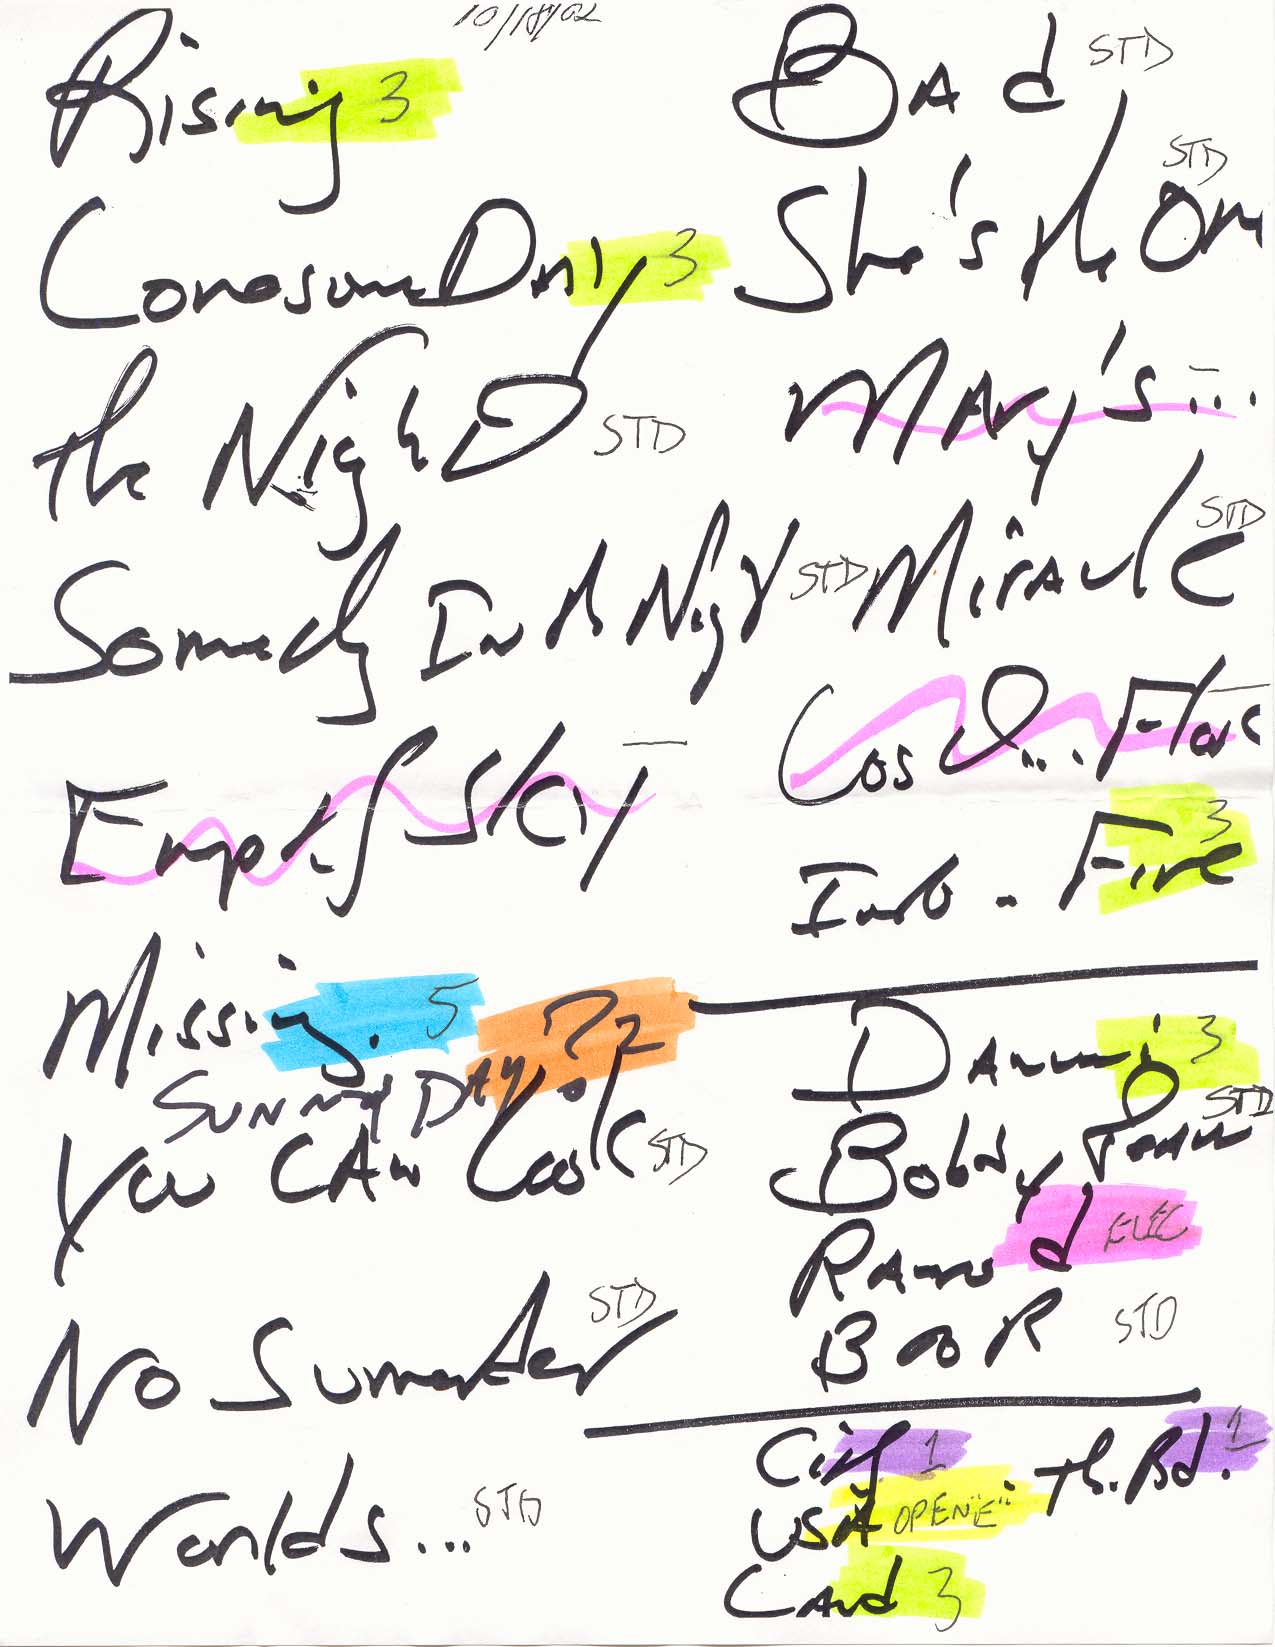 10/18/02
Rising 3
Lonesome Day 3
the Night STD
Somedy In A Nigt STD
Empty Sky
Missing. 5 ? 2
SUNNY DAY
You CAn Look STD
No Surrender STD
Worlds... STD
BAd STD
She's the One STD
MAry's...
Miracle STD
Flore
Into . Fire 3
Dancing 3
Bobby Jean STD
Ramrod ELEC
BOOR STD
City 1 th. Rd. 1
USA OPEN "E"
Land 3